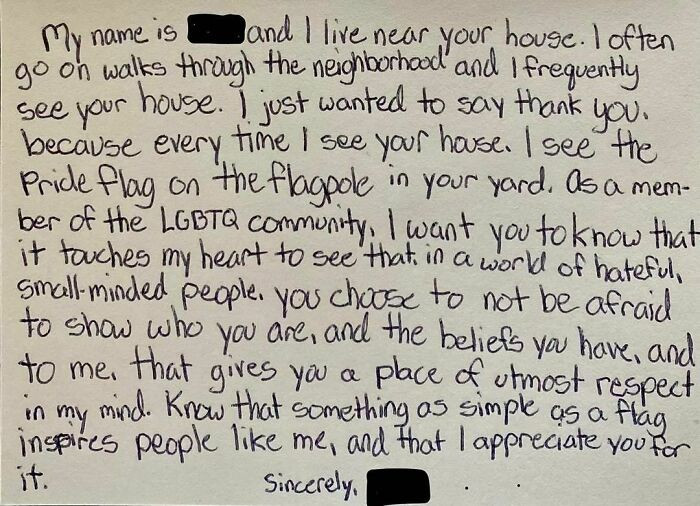 My name is and I live near your house. I often
go on walks through the neighborhood and I frequently
see your house. I just wanted to say thank you.
because every time I see your house. I see the
Pride flag on the flagpole in your yard. As a mem-
ber of the LGBTQ community, I want you to know that
it touches my heart to see that, in a world of hateful,
small-minded people, you choose to not be afraid
to show who you are, and the beliefs you have, and
to me, that gives you a place of utmost respect
in my mind. Know that something as simple as a flag
inspires people like me, and that I appreciate you for
it.
Sincerely,